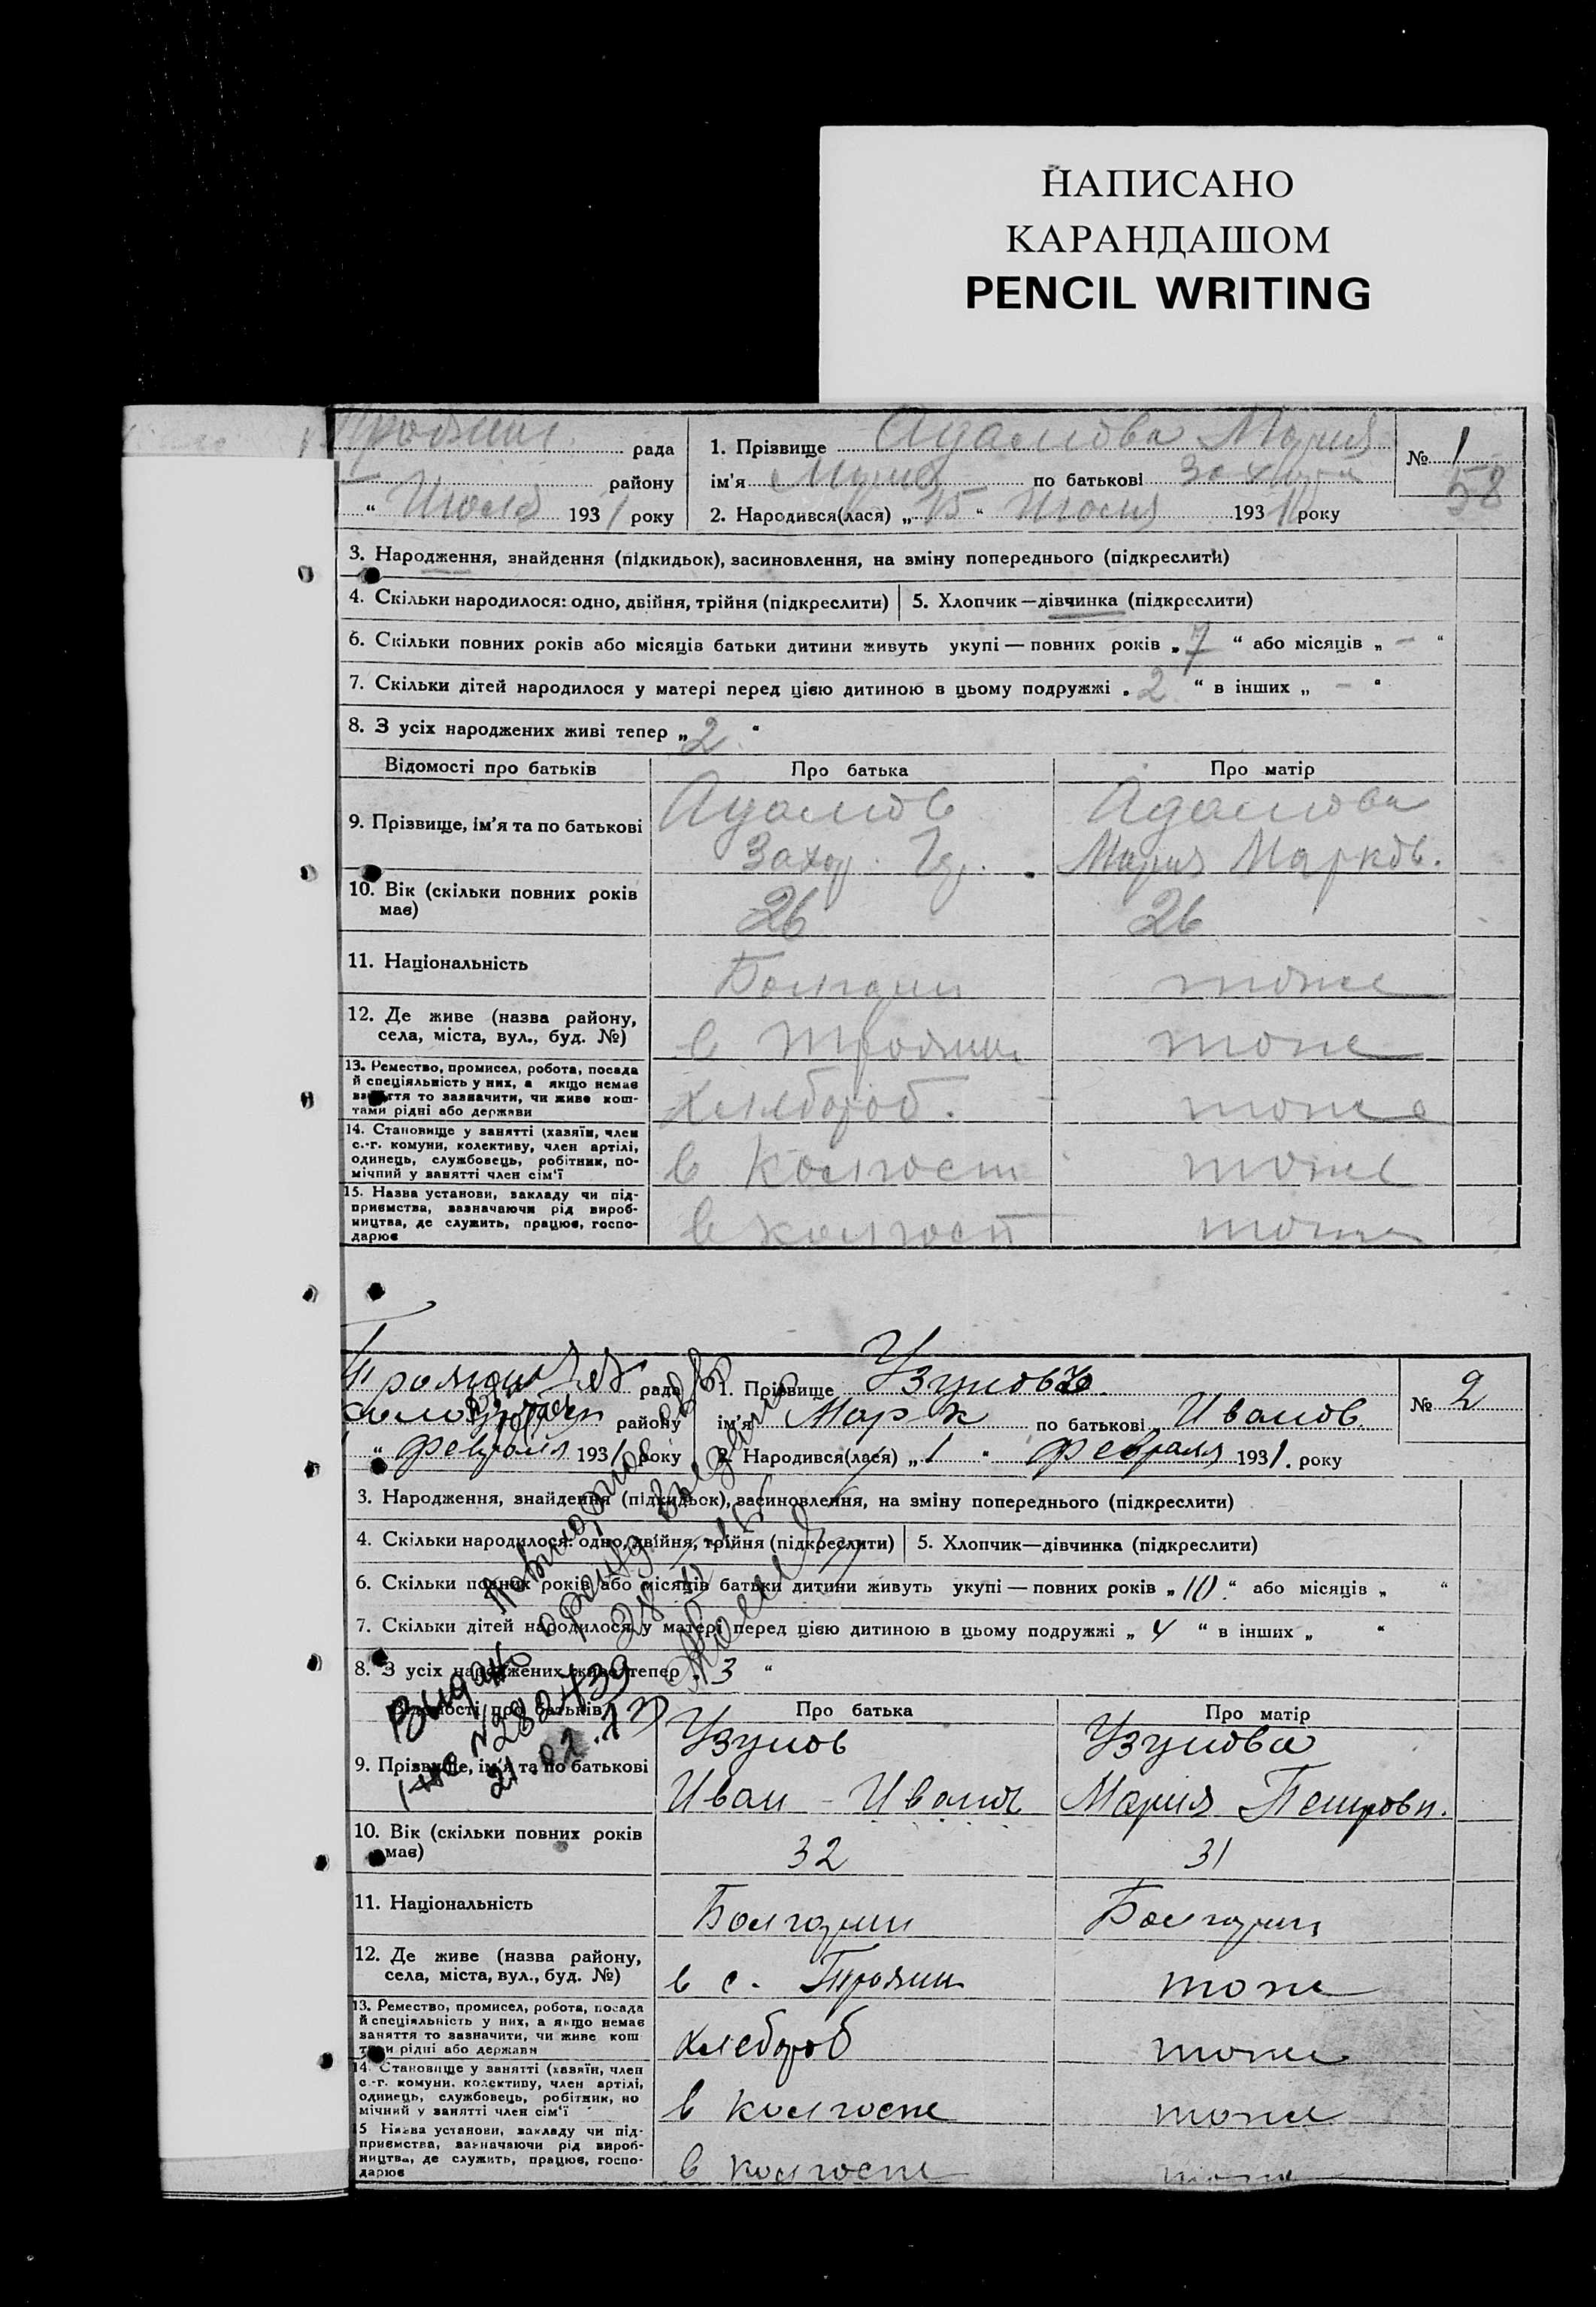 НАПИСАНО
КАРАНДАШОМ
PENCIL WRITING
рада
1. Прізвище Адамова Мария
№ 1
58
району
ім'я Мария по батькові
" Июля 1931 року
2. Народився(лася) „ 15 " Июля 1931 року
3. Народження, знайдення (підкидьок), засиновлення, на зміну попереднього (підкреслити)
4. Скільки народилося: одно, двійня, трійня (підкреслити)
5. Хлопчик—дівчинка (підкреслити)
6. Скільки повних років або місяців батьки дитини живуть укупі — повних років „ 7 " або місяців „ - "
7. Скільки дітей народилося у матері перед цією дитиною в цьому подружжі „ 2 " в інших „ - "
8. З усіх народжених живі тепер „ 2 "
Відомості про батьків
Про батька
Про матір
9. Прізвище, ім'я та по батькові
Адамов
Захар. Гр.
Адамова
Мария Марков.
10. Вік (скільки повних років
має)
26
26
11. Національність
Болгарин
тоже
12. Де живе (назва району,
села, міста, вул., буд. №)
в Трояни
тоже
13. Ремество, промисел, робота, посада
й спеціяльність у них, а якщо немає
заняття то зазначити, чи живе кош-
тами рідні або держави
Хлебороб.
тоже
14. Становище у занятті (хазяїн, член
с.-г. комуни, колективу, член артілі,
одинець, службовець, робітник, по-
мічний у занятті член сім'ї
в колгосп
тоже
15. Назва установи, закладу чи під-
приємства, зазначаючи рід вироб-
ництва, де служить, працює, госпо-
дарює
в колгосп
тоже
рада
1. Прізвище Узунов
№ 2
району
ім'я Марк по батькові Иванов
" февраля 1931 року
2. Народився(лася) „ 1 " февраля 1931. року
3. Народження, знайдення (підкидьок), засиновлення, на зміну попереднього (підкреслити)
4. Скільки народилося: одно, двійня, трійня (підкреслити)
5. Хлопчик—дівчинка (підкреслити)
6. Скільки повних років або місяців батьки дитини живуть укупі — повних років „ 10 " або місяців „ "
7. Скільки дітей народилося у матері перед цією дитиною в цьому подружжі „ 4 " в інших „ "
8. З усіх народжених живі тепер „ 3 "
Видано
повторное
№ 282439
Відомості про батьків
Про батька
Про матір
9. Прізвище, ім'я та по батькові
Узунов
Иван - Иванов
Узунова
Мария Петровн.
10. Вік (скільки повних років
має)
32
31
11. Національність
Болгарин
Болгарин
12. Де живе (назва району,
села, міста, вул., буд. №)
в с. Трояни
тоже
13. Ремество, промисел, робота, посада
й спеціяльність у них, а якщо немає
заняття то зазначити, чи живе кош
тами рідні або держави
хлебороб
тоже
14. Становище у занятті (хазяїн, член
с.-г. комуни, колективу, член артілі,
одинець, службовець, робітник, по
мічний у занятті член сім'ї
в колгоспе
тоже
15 Назва установи, закладу чи під-
приємства, зазначаючи рід вироб-
ництва, де служить, працює, госпо-
дарює
в колгоспе
тоже